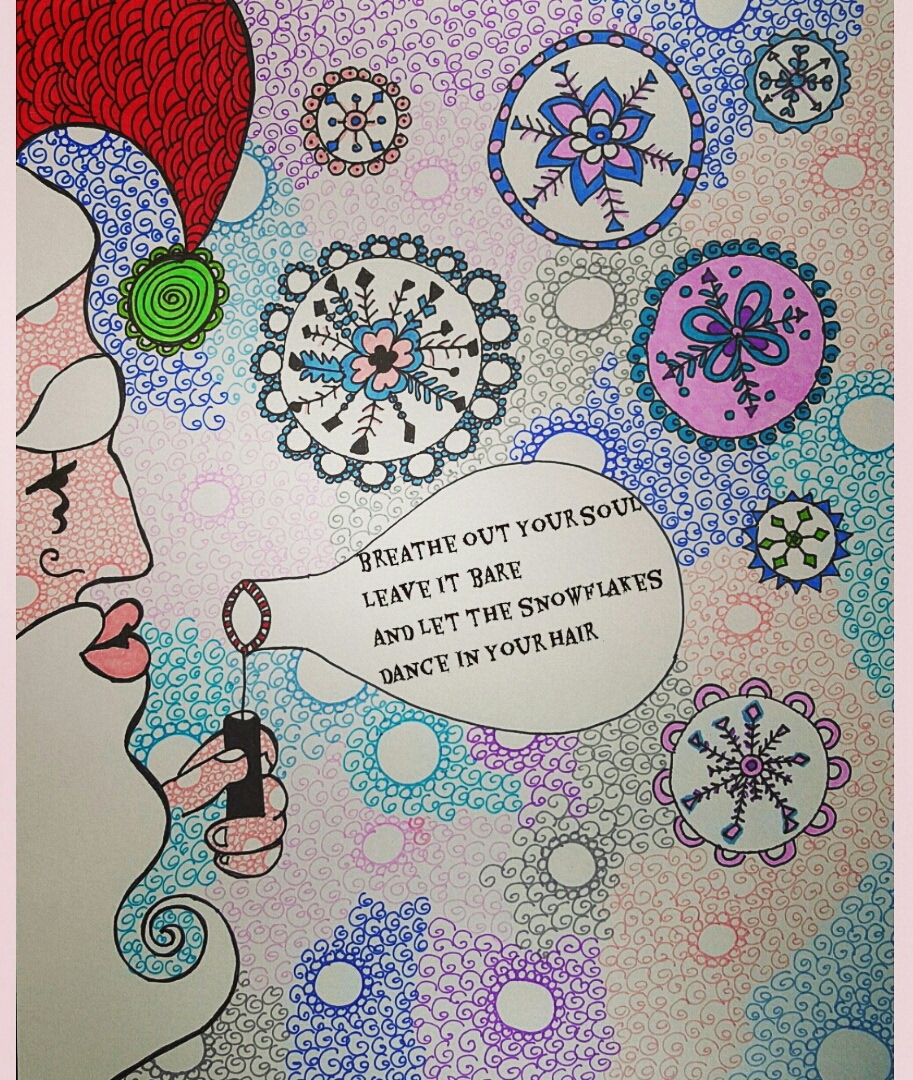 BREATHE OUT YOUR SOUL
LEAVE IT BARE
AND LET THE SNOWFLAKES
DANCE IN YOUR HAIR